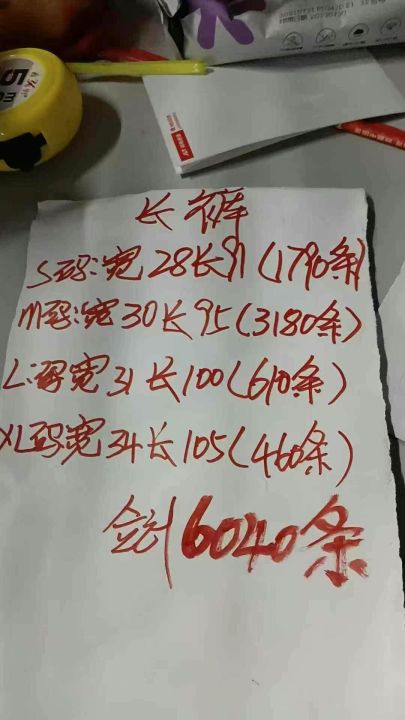 长裤
S码:宽28长91(1790条)
M码:宽30长95(3180条)
L码宽31长100(610条)
XL码宽34长105(460条)
合计6040条
5